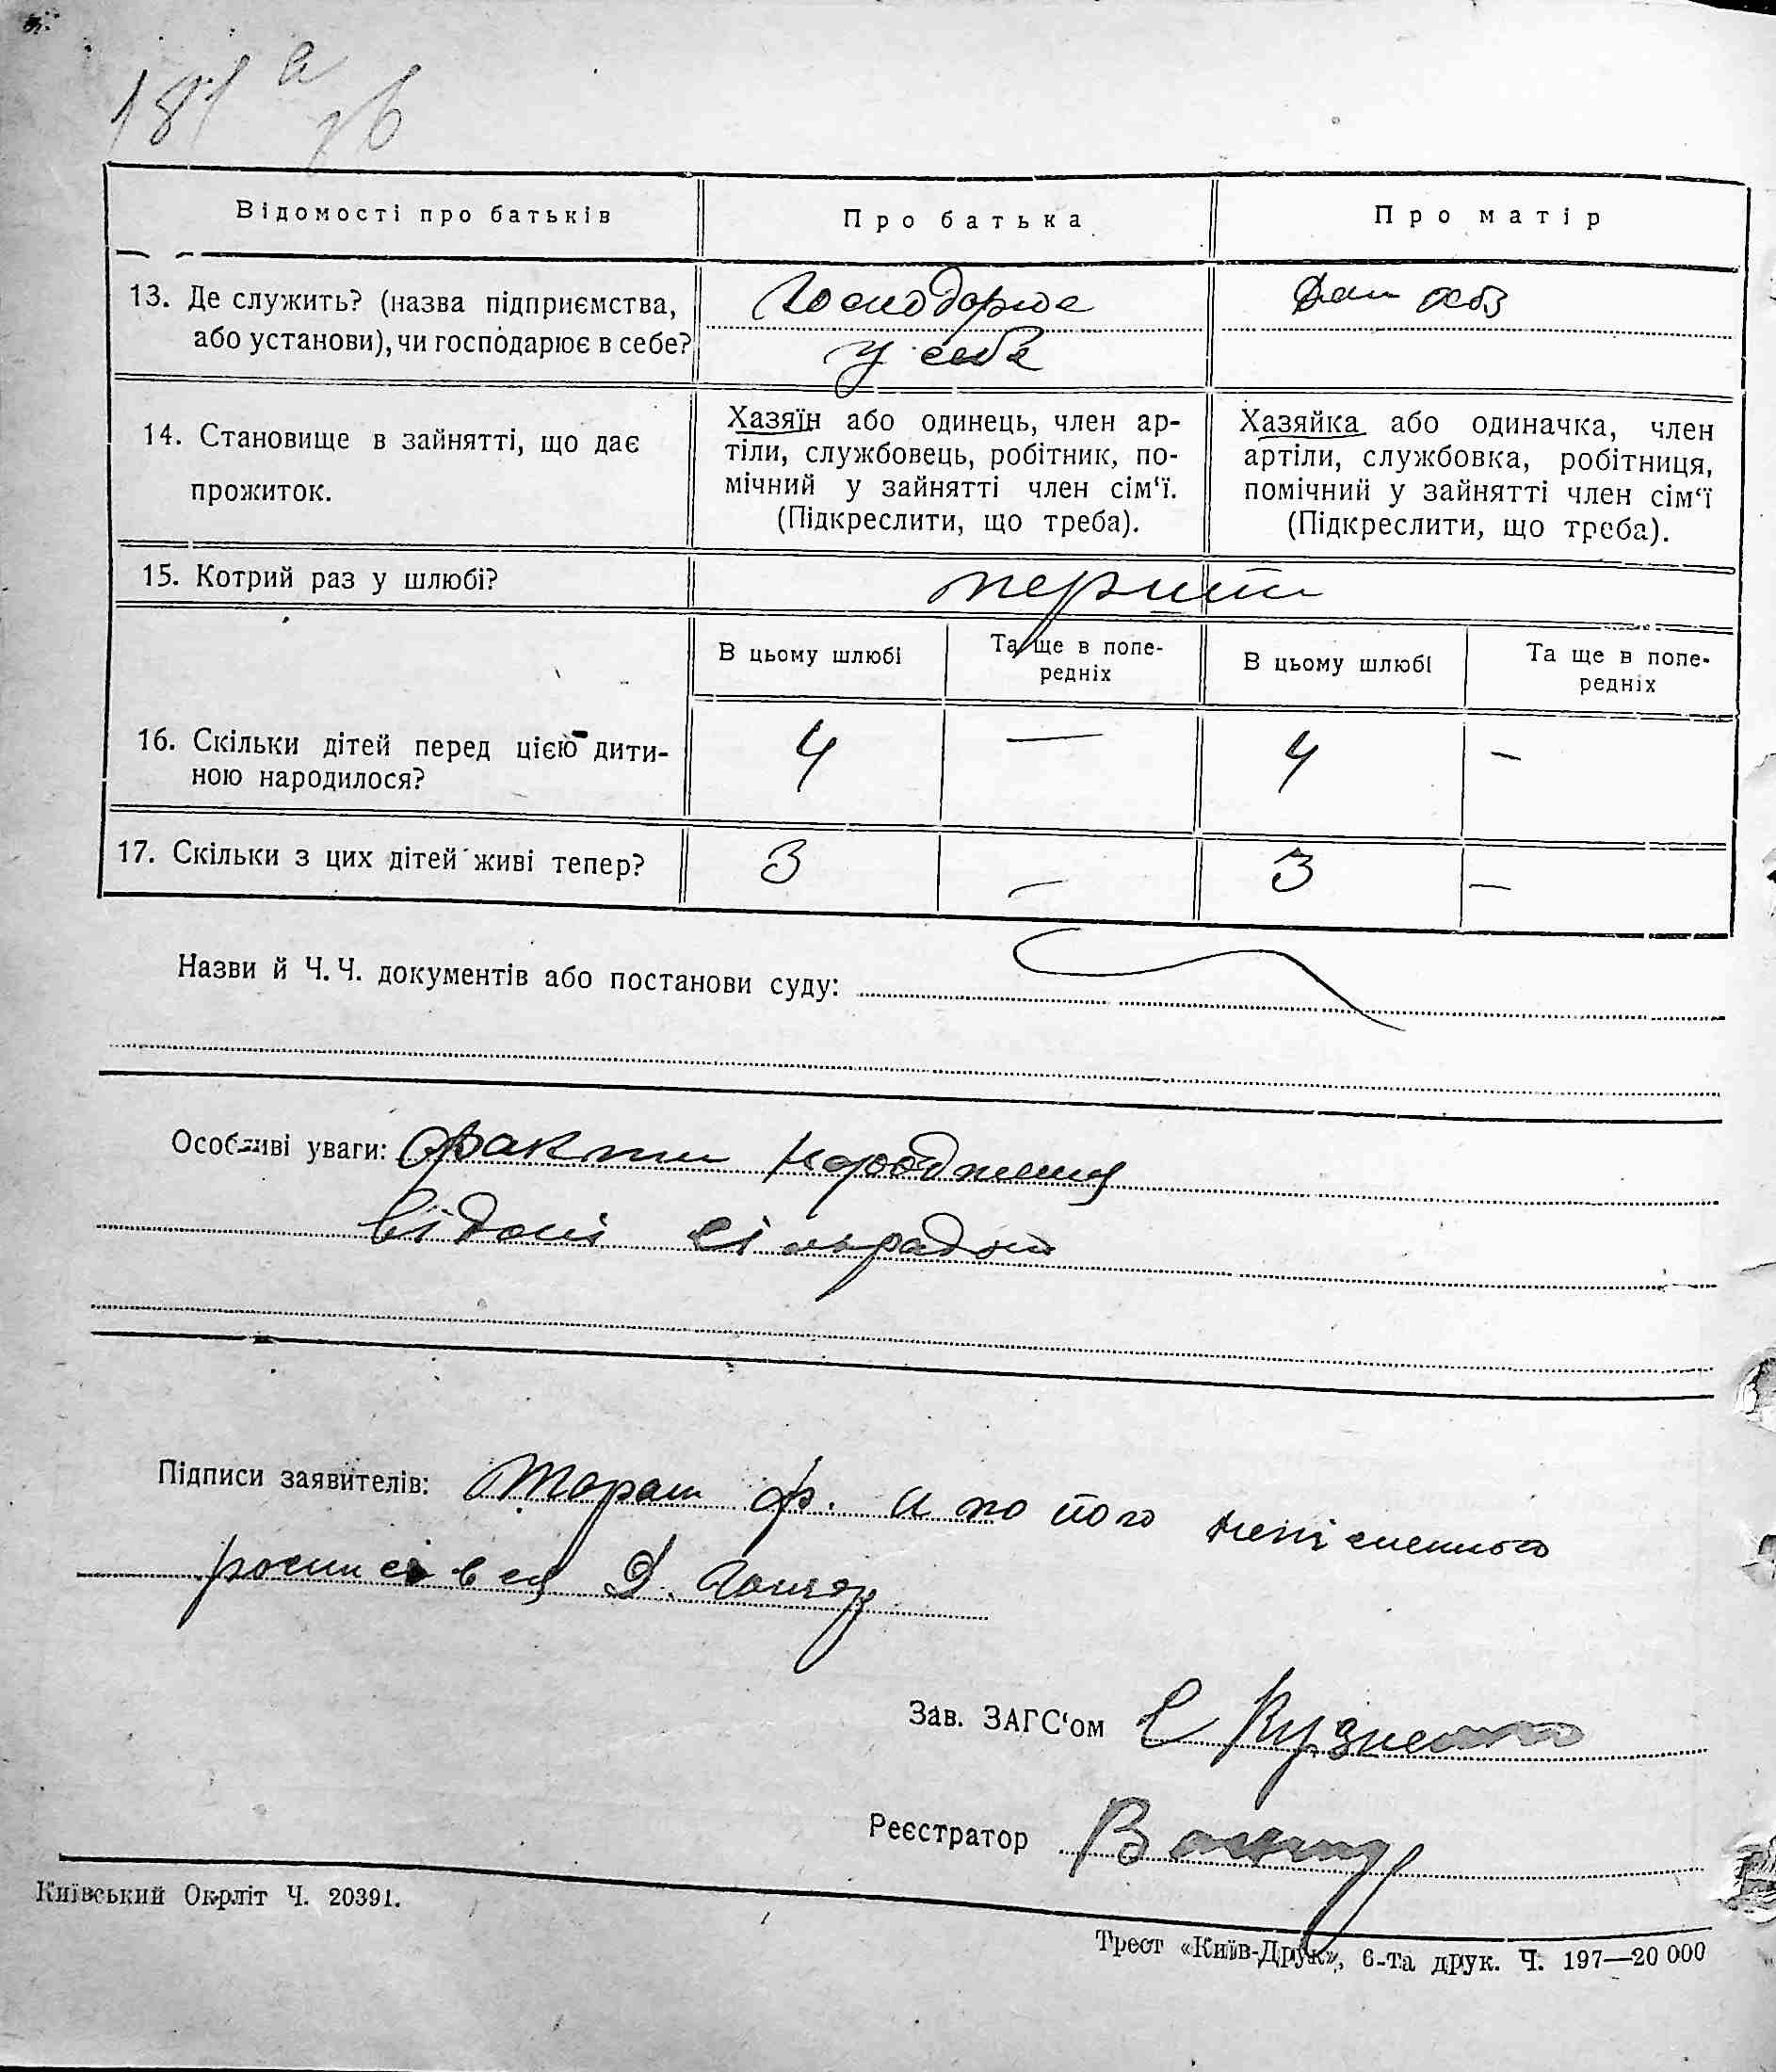 181 а
Відомості про батьків
Про батька
Про матір
13. Де служить? (назва підприємства,
або установи), чи господарює в себе?
Господарює
у себе
Дом обз
14. Становище в зайнятті, що дає
прожиток.
Хазяїн або одинець, член ар-
тіли, службовець, робітник, по-
мічний у зайнятті член сім'ї.
(Підкреслити, що треба).
Хазяйка або одиначка, член
артіли, службовка, робітниця,
помічний у зайнятті член сім'ї
(Підкреслити, що треба).
15. Котрий раз у шлюбі?
перший
В цьому шлюбі
Та ще в попе-
редніх
В цьому шлюбі
Та ще в попе-
редніх
16. Скільки дітей перед цією дити-
ною народилося?
4 — 4 —
17. Скільки з цих дітей живі тепер?
3 — 3 —
Назви й Ч. Ч. документів або постанови суду:
Особливі уваги: Факти народження
відомі сільрадою
Підписи заявителів: Ф. а по його неписьменного
росписався Д. Гончар
Зав. ЗАГС'ом Є Кузненко
Реєстратор
Київський Окрліт Ч. 20391.
Трест «Київ-Друк», 6-та друк. Ч. 197—20 000